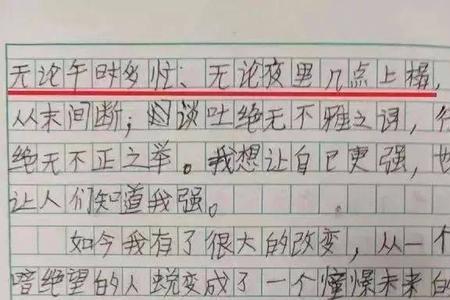 无论午时多忙、无论夜里几点上榻,
从末间断;谈吐绝无不雅之词,行
绝无不正之举。我想让自已更强,也
让人们知道我强。
如今我有了很大的改变,从一个
喑绝望的人蜕变成了一个憧憬未来的